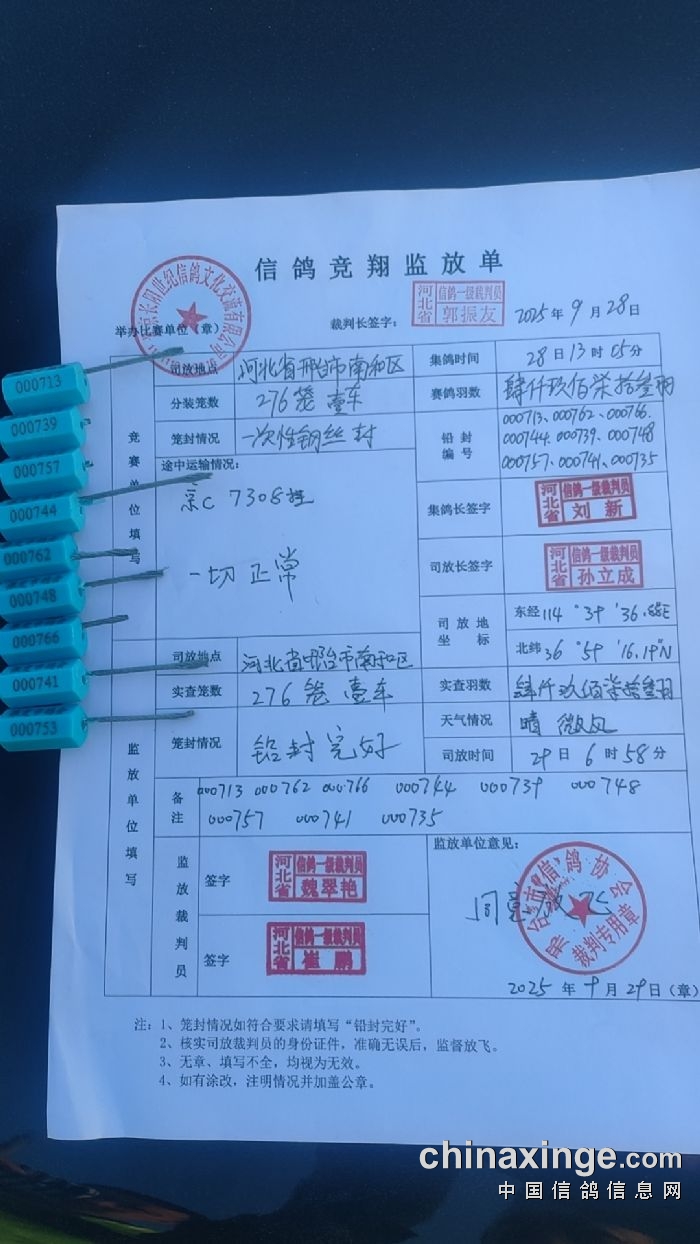 信鸽竞翔监放单
举办比赛单位（章）
裁判长签字：
河北省
信鸽一级裁判员
郭振友
2025年9月28日
竞赛单位填写
司放地点
河北省邢台市南和区
集鸽时间
28日13时05分
分装笼数
276笼壹车
赛鸽羽数
肆仟玖佰柒拾叁羽
笼封情况
一次性钢丝封
铅封编号
000713、000762、000766、
000744、000739、000748
000757、000741、000735
途中运输情况：
京C 7308挂
一切正常
集鸽长签字
河北省
信鸽一级裁判员
刘新
司放长签字
河北省
信鸽一级裁判员
孙立成
司放地坐标
东经114°39'36.88E
北纬36°59'16.19"N
监放单位填写
司放地点
河北省邢台市南和区
实查笼数
276笼壹车
实查羽数
肆仟玖佰柒拾叁羽
笼封情况
铅封完好
天气情况
晴 微风
司放时间
29日6时58分
备注
000713 000762 000766 000744 000739 000748
000757 000741 000735
监放裁判员
签字
河北省
信鸽一级裁判员
魏翠艳
签字
河北省
信鸽一级裁判员
崔鹏
监放单位意见：
同意放飞
信鸽协会
裁判专用章
2025年9月29日（章）
注：1、笼封情况如符合要求请填写“铅封完好”。
2、核实司放裁判员的身份证件，准确无误后，监督放飞。
3、无章、填写不全，均视为无效。
4、如有涂改，注明情况并加盖公章。
000713
000739
000757
000744
000762
000748
000766
000741
000753
chinaxinge.com
中国信鸽信息网